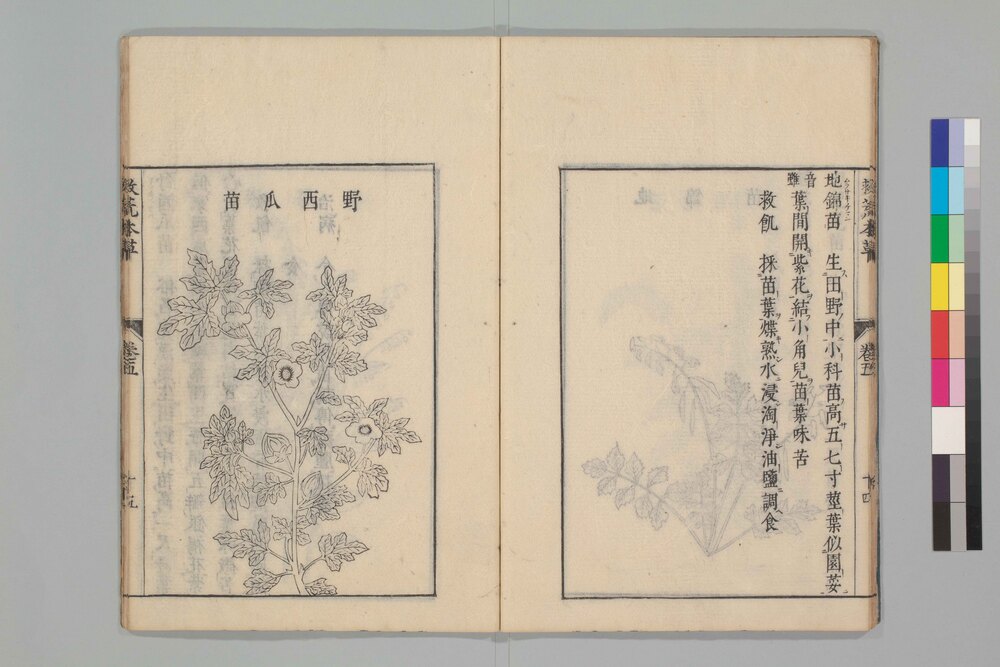 救荒本草
卷五
十四
地錦苗 生田野中小科苗高五七寸莖葉似園荽
音雖
葉間開紫花結小角兒苗葉味苦
救飢 採苗葉煠熟水浸淘淨油鹽調食
野西瓜苗
救荒本草
卷五
十五